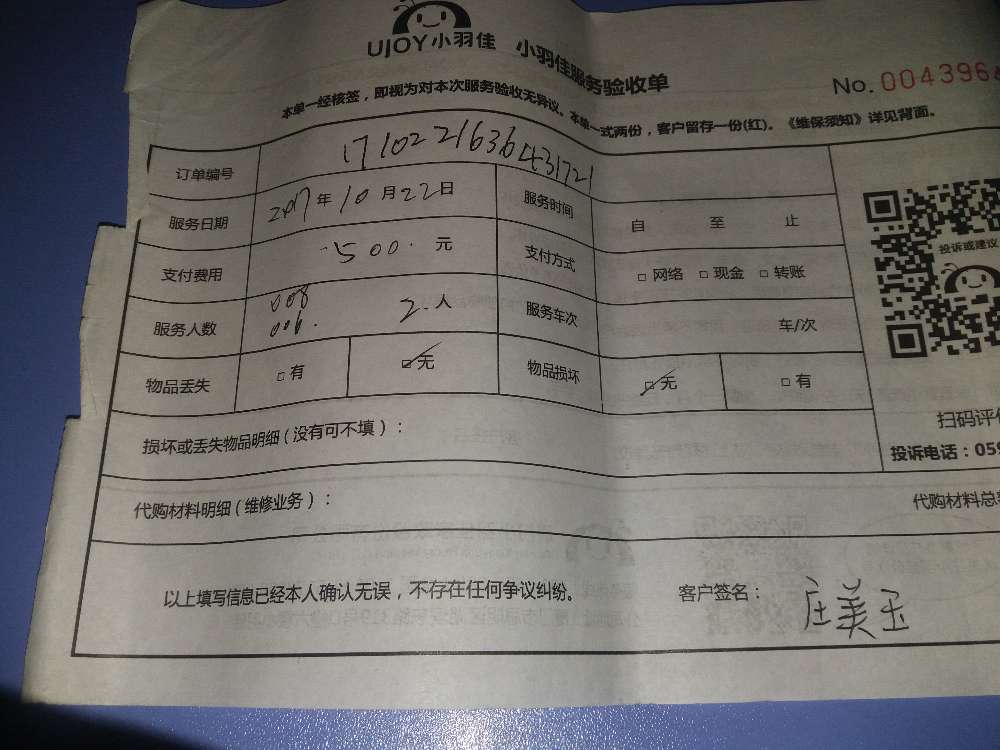 UJOY小羽佳 小羽佳服务验收单
No.004396
本单一经核签，即视为对本次服务验收无异议。本单一式两份，客户留存一份(红)。《维保须知》详见背面。
订单编号 1710221636431721
服务日期 2017年10月22日 服务时间 自 至 止
支付费用 500. 元 支付方式 □网络 □现金 □转账
服务人数 008 006. 2.人 服务车次 车/次
物品丢失 □有 □无 物品损坏 □无 □有
投诉或建议
损坏或丢失物品明细（没有可不填）：
扫码评
投诉电话：059
代购材料明细（维修业务）：
代购材料总
以上填写信息已经本人确认无误，不存在任何争议纠纷。 客户签名： 庄美玉